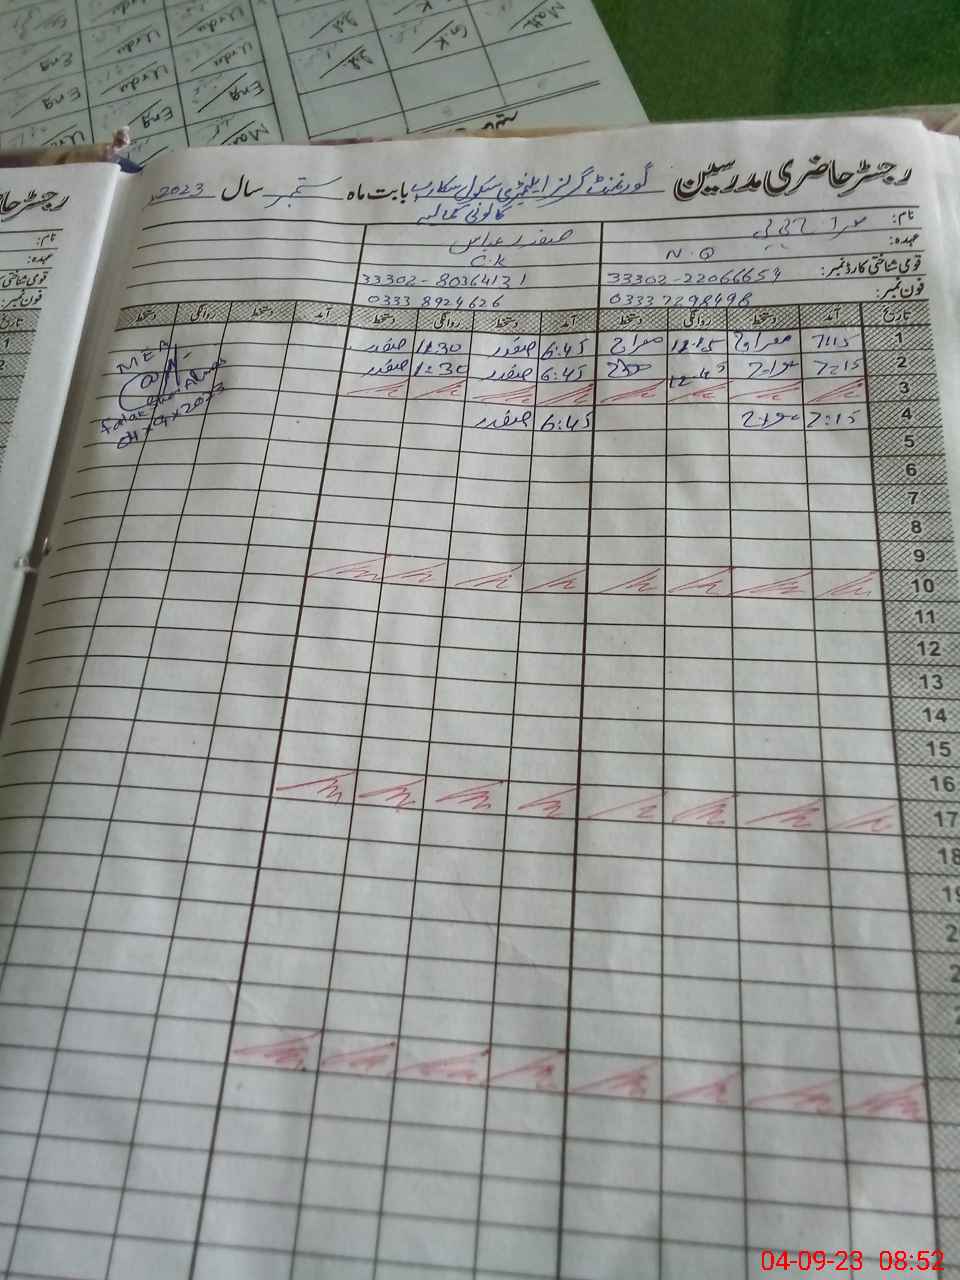 رجسٹر حاضری مدرسین گورنمنٹ گرلز ایلیمنٹری سکول بابت ماہ ستمبر سال 2023
کالونی کمالیہ
نام: صفدر عباس
عہدہ: N.Q C.K
قومی شناختی کارڈ نمبر: 33302-22066654 33302-80364131
فون نمبر: 03337298498 03338924626
تاریخ آمد دستخط روانگی دستخط آمد دستخط روانگی دستخط آمد دستخط روانگی دستخط
1 7:15 معراج 12:15 معراج 6:45 صفدر 12:30 صفدر
2 7:15 معراج 12:45 معراج 6:45 صفدر 12:30 صفدر
3
4 7:15 معراج 6:45 صفدر
5
6
7
8
9
10
11
12
13
14
15
16
17
18
19
MEA
04-09-2023
Math
G.K
Isl.
Isl.
Urdu
Urdu
Urdu
Eng
Eng
Eng
Eng
رجسٹر حا
نام:
عہدہ:
قومی شناختی کا
فون نمبر:
تاریخ
1
2
04-09-23 08:52